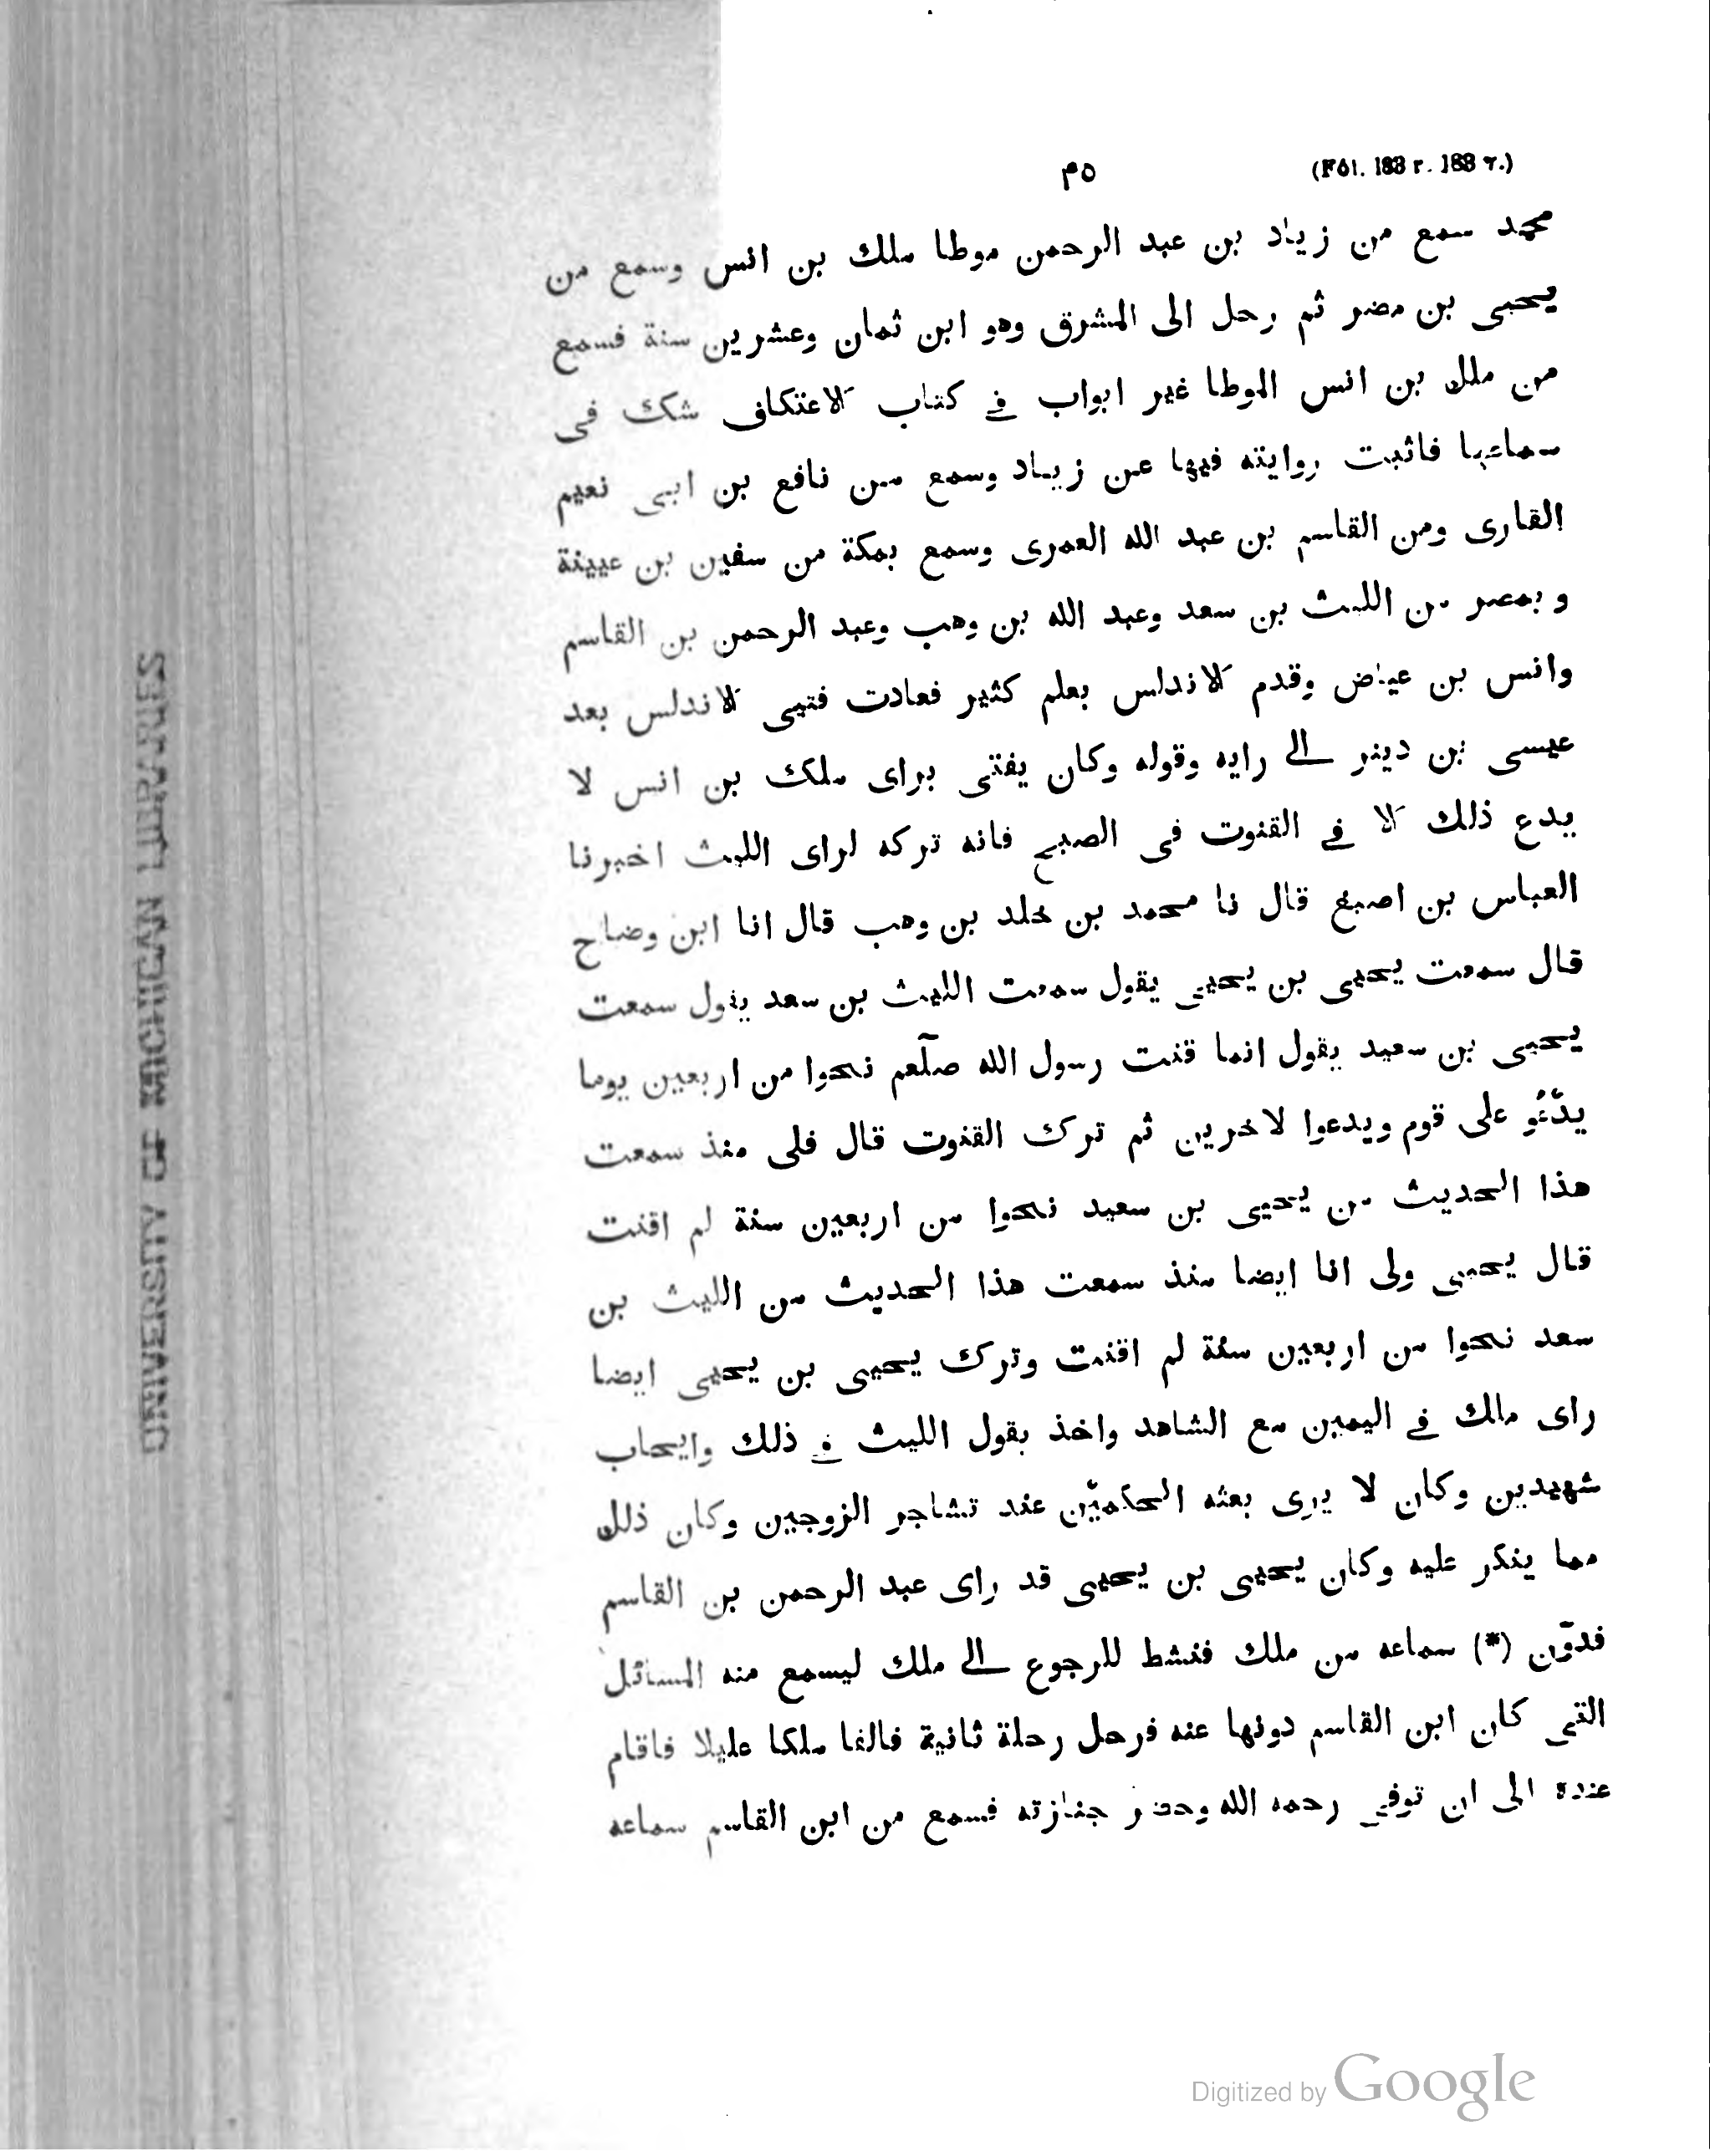 (Fol. 183 r. 183 v.)
٤٥
محمد سمع من زياد بن عبد الرحمن موطا ملك بن انس وسمع من
يحيى بن مضر ثم رحل الى المشرق وهو ابن ثمان وعشرين سنة فسمع
من ملك بن انس الموطا غير ابواب في كتاب الاعتكاف شك فى
سماعها فاثبت روايته فيها عن زياد وسمع من نافع بن ابى نعيم
القارى ومن القاسم بن عبد الله العمرى وسمع بمكة من سفين بن عيينة
وبمصر من الليث بن سعد وعبد الله بن وهب وعبد الرحمن بن القاسم
وانس بن عياض وقدم الاندلس بعلم كثير فعادت فتيى الاندلس بعد
عيسى بن دينر الى رايه وقوله وكان يفتى براى ملك بن انس لا
يدع ذلك الا في القنوت فى الصبح فانه تركه لراى الليث اخبرنا
العباس بن اصبغ قال نا محمد بن خلد بن وهب قال انا ابن وضاح
قال سمعت يحيى بن يحيى يقول سمعت الليث بن سعد يقول سمعت
يحيى بن سعيد يقول انما قنت رسول الله صلّعم نحوا من اربعين يوما
يدّعُو على قوم ويدعوا لاخرين ثم ترك القنوت قال فلى منذ سمعت
هذا الحديث من يحيى بن سعيد نحوا من اربعين سنة لم اقنت
قال يحيى ولى انا ايضا منذ سمعت هذا الحديث من الليث بن
سعد نحوا من اربعين سنة لم اقنت وترك يحيى بن يحيى ايضا
راى مالك في اليمين مع الشاهد واخذ بقول الليث في ذلك وايحاب
شهيدين وكان لا يرى بعثه الحكميّن عند تشاجر الزوجين وكان ذلك
مما ينكر عليه وكان يحيى بن يحيى قد راى عبد الرحمن بن القاسم
فدوّن (*) سماعه من ملك فنشط للرجوع الى ملك ليسمع منه المسائل
التى كان ابن القاسم دونها عنه فرحل رحلة ثانية فالفا ملكا عليلا فاقام
عنده الى ان توفى رحمه الله وحضر جنازته فسمع من ابن القاسم سماعه
UNIVERSITY OF MICHIGAN LIBRARIES
Digitized by Google